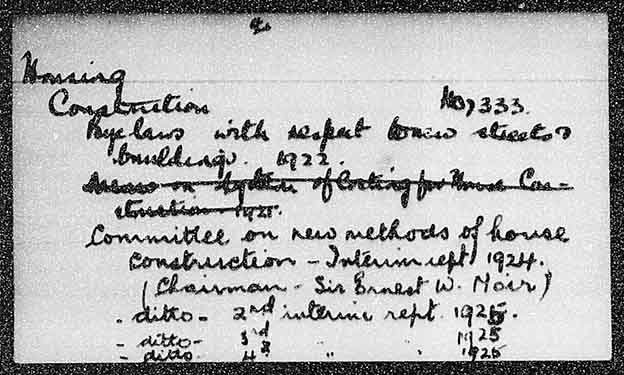 Housing
Construction No, 333.
Bye laws with respect to new streets &
buildings. 1922.
on System of Costing for House Con-
struction 1921.
Committee on new methods of house
construction - Interim rept 1924.
(Chairman - Sir Ernest W. Moir)
- ditto - 2nd interim rept. 1925.
- ditto - 3rd " " 1925
- ditto 4th " " 1925